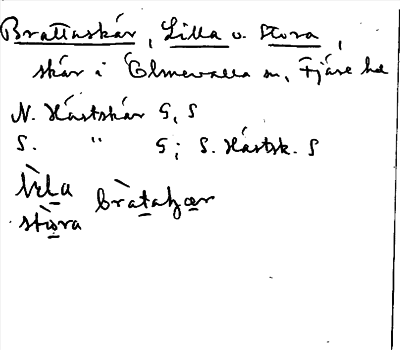 Brattaskär, Lilla o. Stora,
skär i Ölmevalla sn, Fjäre hd
N. Hästskär G, S
S. " G; S. Hästsk. S
lìla
stòra bràtahær